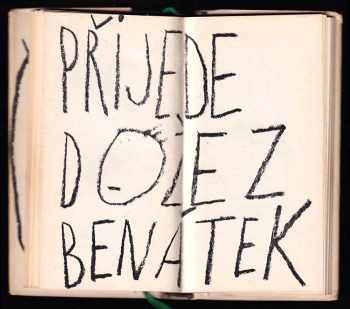 PŘIJEDE
DOŽE Z
BENÁTEK